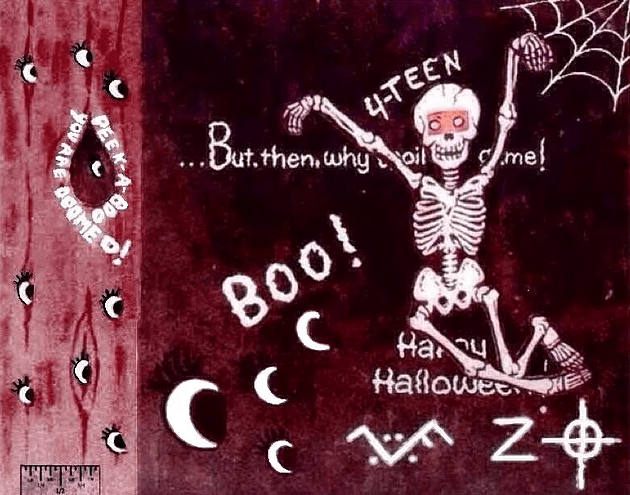 PEEK-A-BOO
YOU ARE DOOMED!
4-TEEN
...But, then, why spoil game!
BOO!
Happy
Halloween
Z
1/2